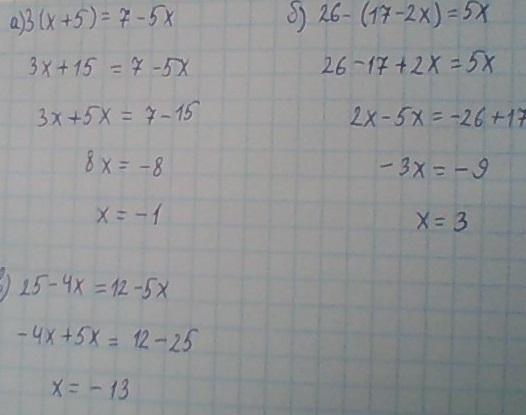 а) 3(x+5) = 7-5x
3x+15 = 7-5x
3x+5x = 7-15
8x = -8
x = -1
б) 26-(17-2x)=5x
26-17+2x=5x
2x-5x=-26+17
-3x=-9
x=3
в) 25-4x=12-5x
-4x+5x=12-25
x=-13